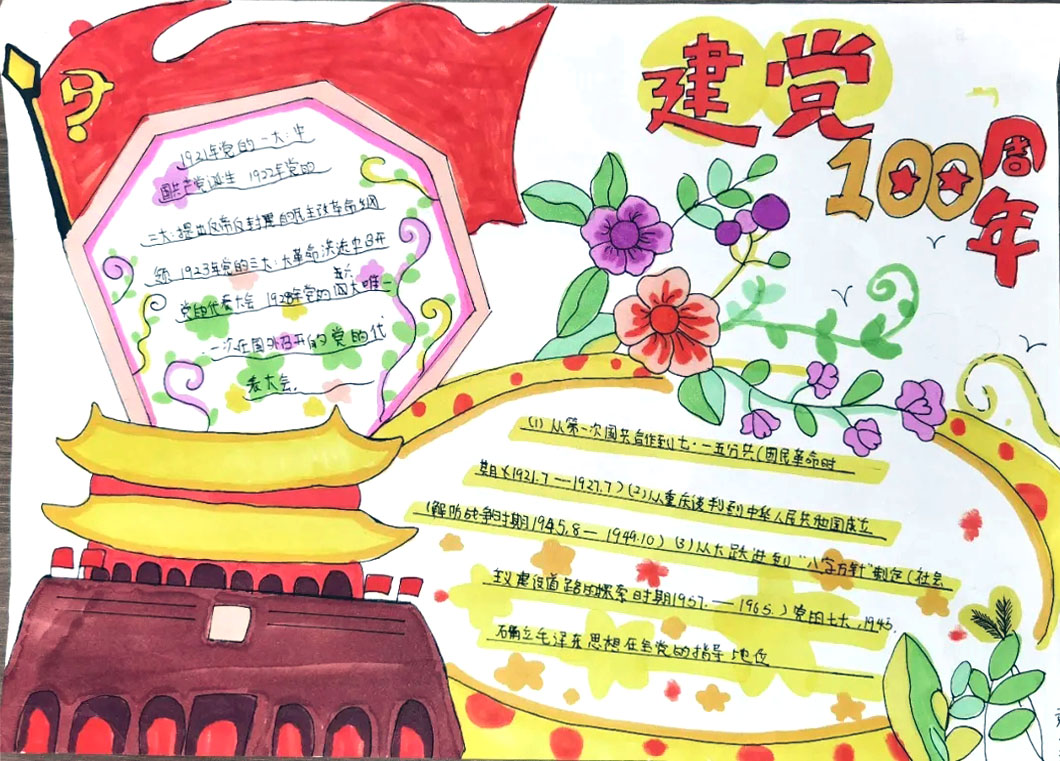 建党
100周年
1921年党的一大:中
国共产党诞生 1922年党的
二大:提出反帝反封建的民主改革命纲
领 1923年党的三大:大革命洪流中召开
党的代表大会 1928年党的六大唯一
一次在国外召开的党的代
表大会.
(1)从第一次国共合作到七·一五分共(国民革命时
期)(1921.7—1927.7)(2)从重庆谈判到中华人民共和国成立
(解放战争时期1945.8—1949.10)(3)从大跃进到“八字方针”制定(社会
主义建设道路的探索时期1957.—1965.)党的七大,1945.
确立毛泽东思想在全党的指导地位